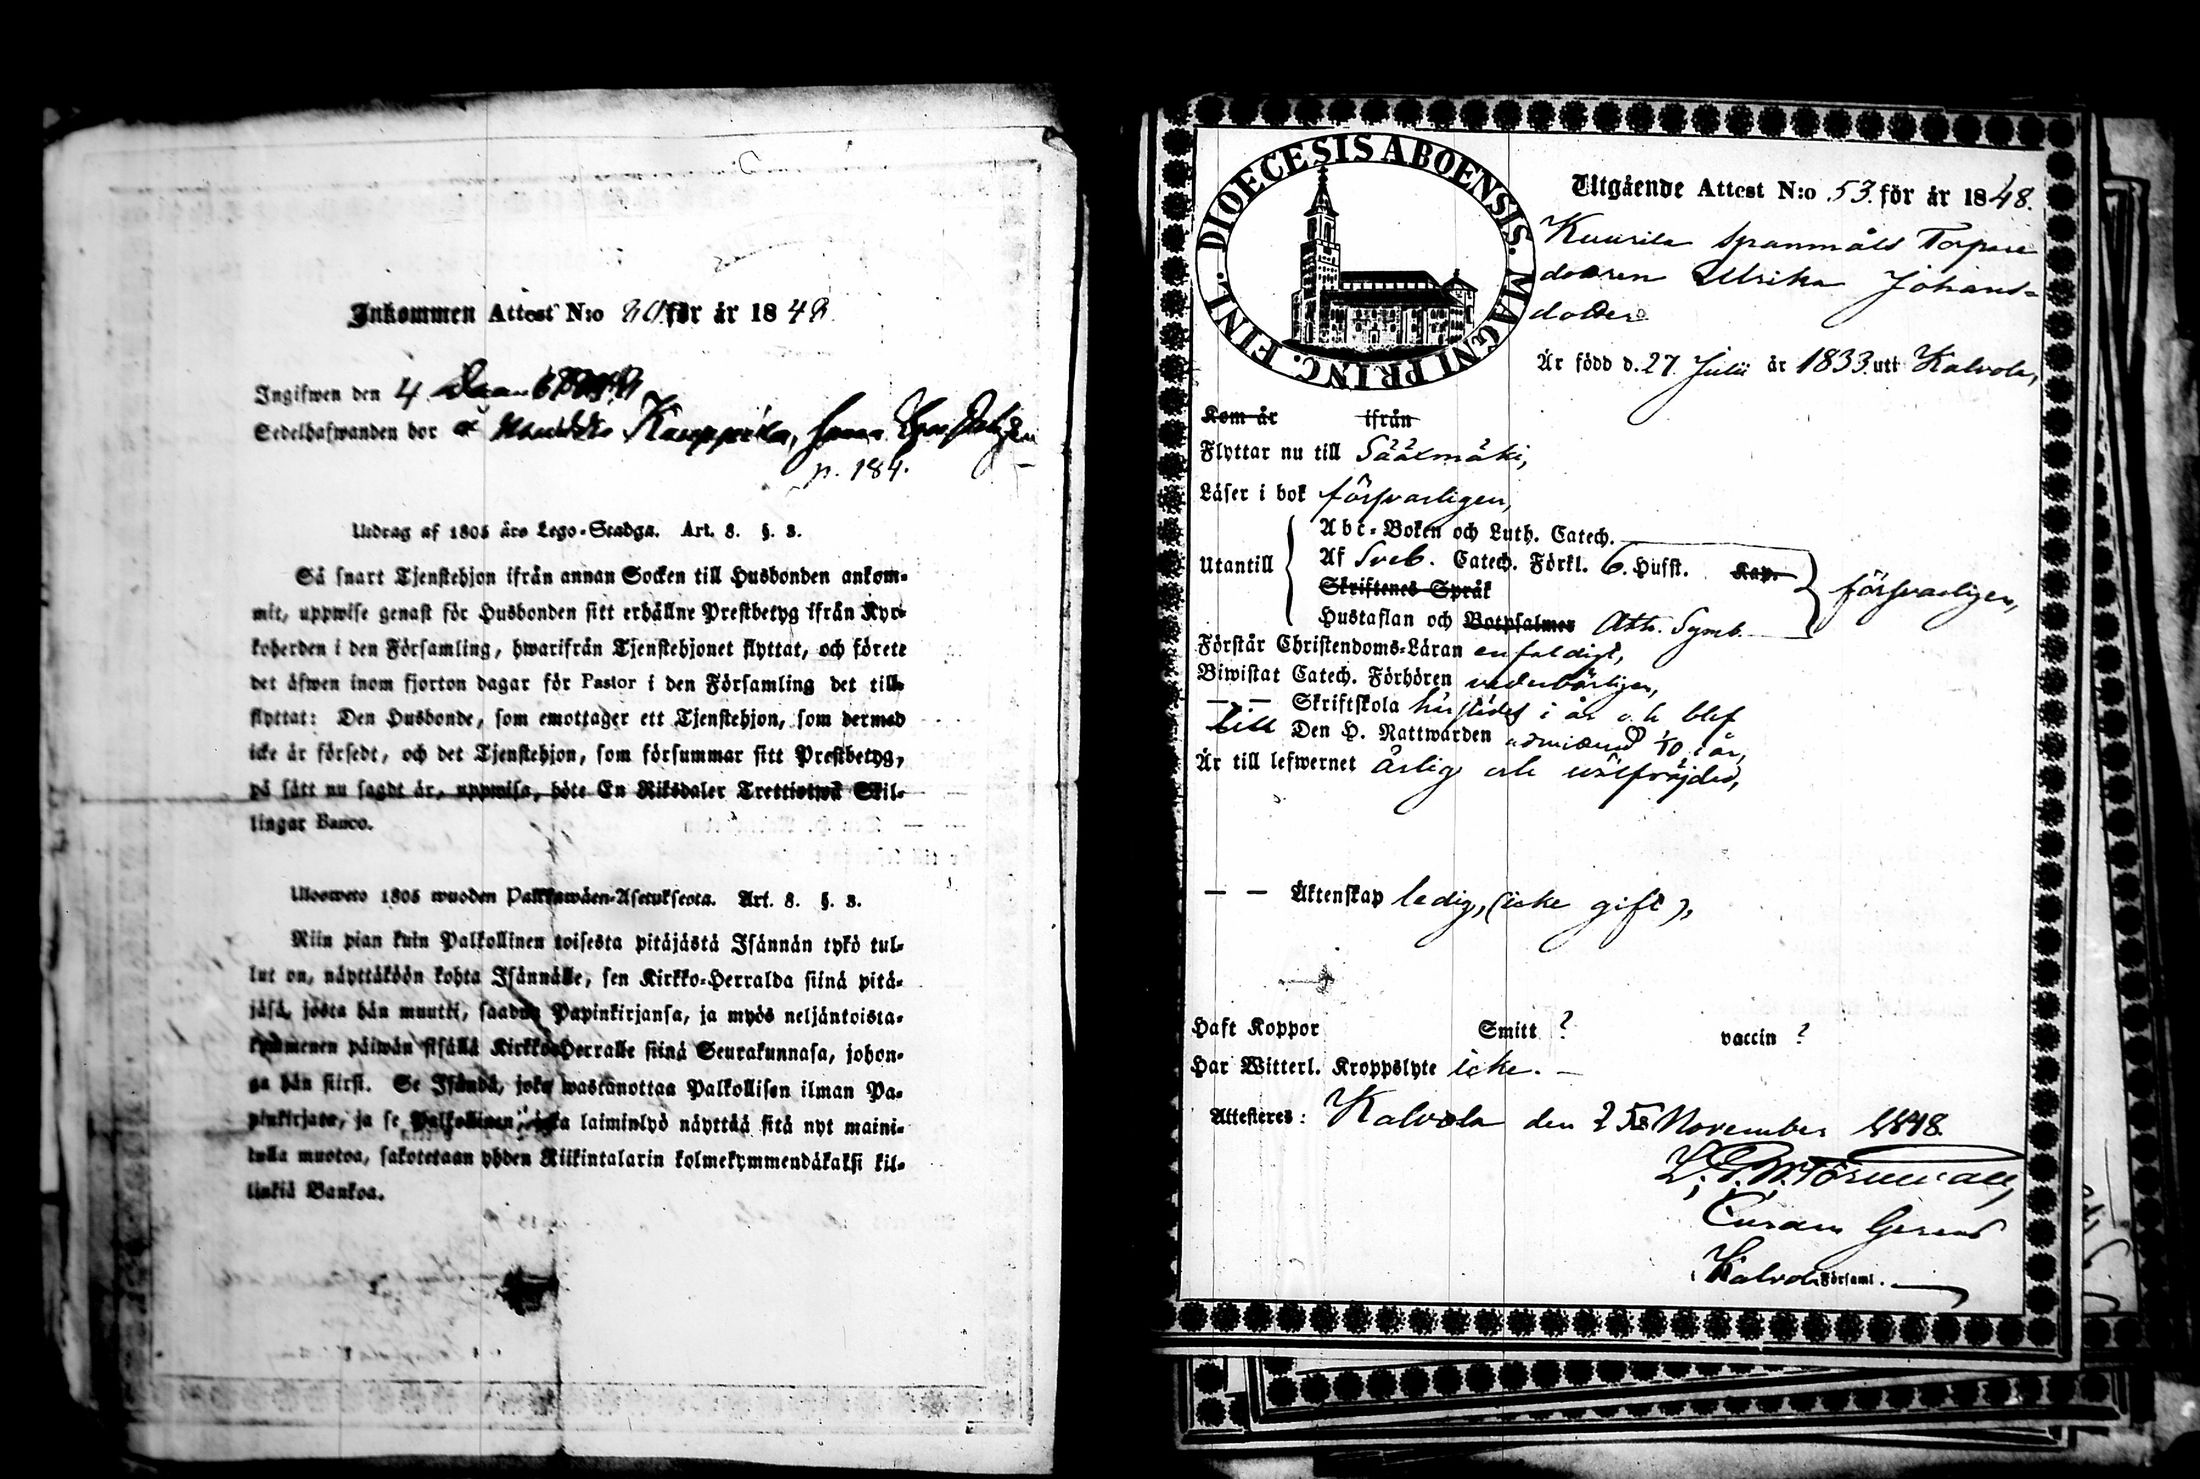 Inkommen Attest N:o för år 184
Ingifwen den 4
Sedelhafwanden bor å Kauppila,
p. 184.
Utdrag af 1805 års Lego-Stadga. Art. 8. §. 3.
Så snart Tjenstehjon ifrån annan Socken till Husbonden ankom-
mit, uppwise genast för Husbonden sitt erhållne Prestbetyg ifrån Kyr-
koherden i den Församling, hwarifrån Tjenstehjonet flyttat, och förete
det äfwen inom fjorton dagar för Pastor i den Församling det till-
flyttat: Den Husbonde, som emottager ett Tjenstehjon, som dermed
icke är försedt, och det Tjenstehjon, som försummar sitt Prestbetyg,
på sätt nu sagdt är, uppwisa, böte En Riksdaler Trettiotwå Skil-
lingar Banco.
Ulosweto 1805 wuoden Palkkawäen-Asetuksesta. Art. 8. §. 3.
Niin pian kuin Palkollinen toisesta pitäjästä Isännän tykö tul-
lut on, näyttäköön kohta Isännälle, sen Kirkko-Herralda siinä pitä-
jäsä, josta hän muutti, saadun Papinkirjansa, ja myös neljäntoista-
kymmenen päiwän sisällä Kirkko-Herralle siinä Seurakunnasa, johon-
ga hän siirsi. Se Isändä, joka wastanottaa Palkollisen ilman Pa-
pinkirjata, ja se Palkollinen, joka laiminlyö näyttää sitä nyt maini-
tulla muotoa, sakotetaan yhden Riikintalarin kolmekymmendäkaksi kil-
linkiä Bankoa.
DIOECESIS ABOENSIS. MAGNI PRINC. FINL.
Utgående Attest N:o 53. för år 1848.
Kuurila Torpare
dottren Ulrika Johans-
dotter
Är född d. 27 Julii år 1833. utt Kalvola,
Kom år ifrån
Flyttar nu till Sääxmäki,
Läser i bok försvarligen,
Abc-Boken och Luth. Catech.
Utantill Af Sveb. Catech. Förkl. 6. Husst. Kap. försvarligen,
Skriftenes Språk
Hustaflan och Botpsalmer Ath. Symb.
Förstår Christendoms-Läran enfaldigt,
Biwistat Catech. Förhören vederbörligen,
— — Skriftskola härstädes i år och blef
till Den H. Nattwarden admitterad 1/10 i år,
Är till lefwernet ärlig och wälfrejdad,
— — Äktenskap ledig, (icke gift),
Haft Koppor Smitt ? vaccin ?
Har Witterl. Kroppslyte icke. —
Attesteres: Kalvola den 25 November 1848.
Curam Gerens
Kalvola Församl.